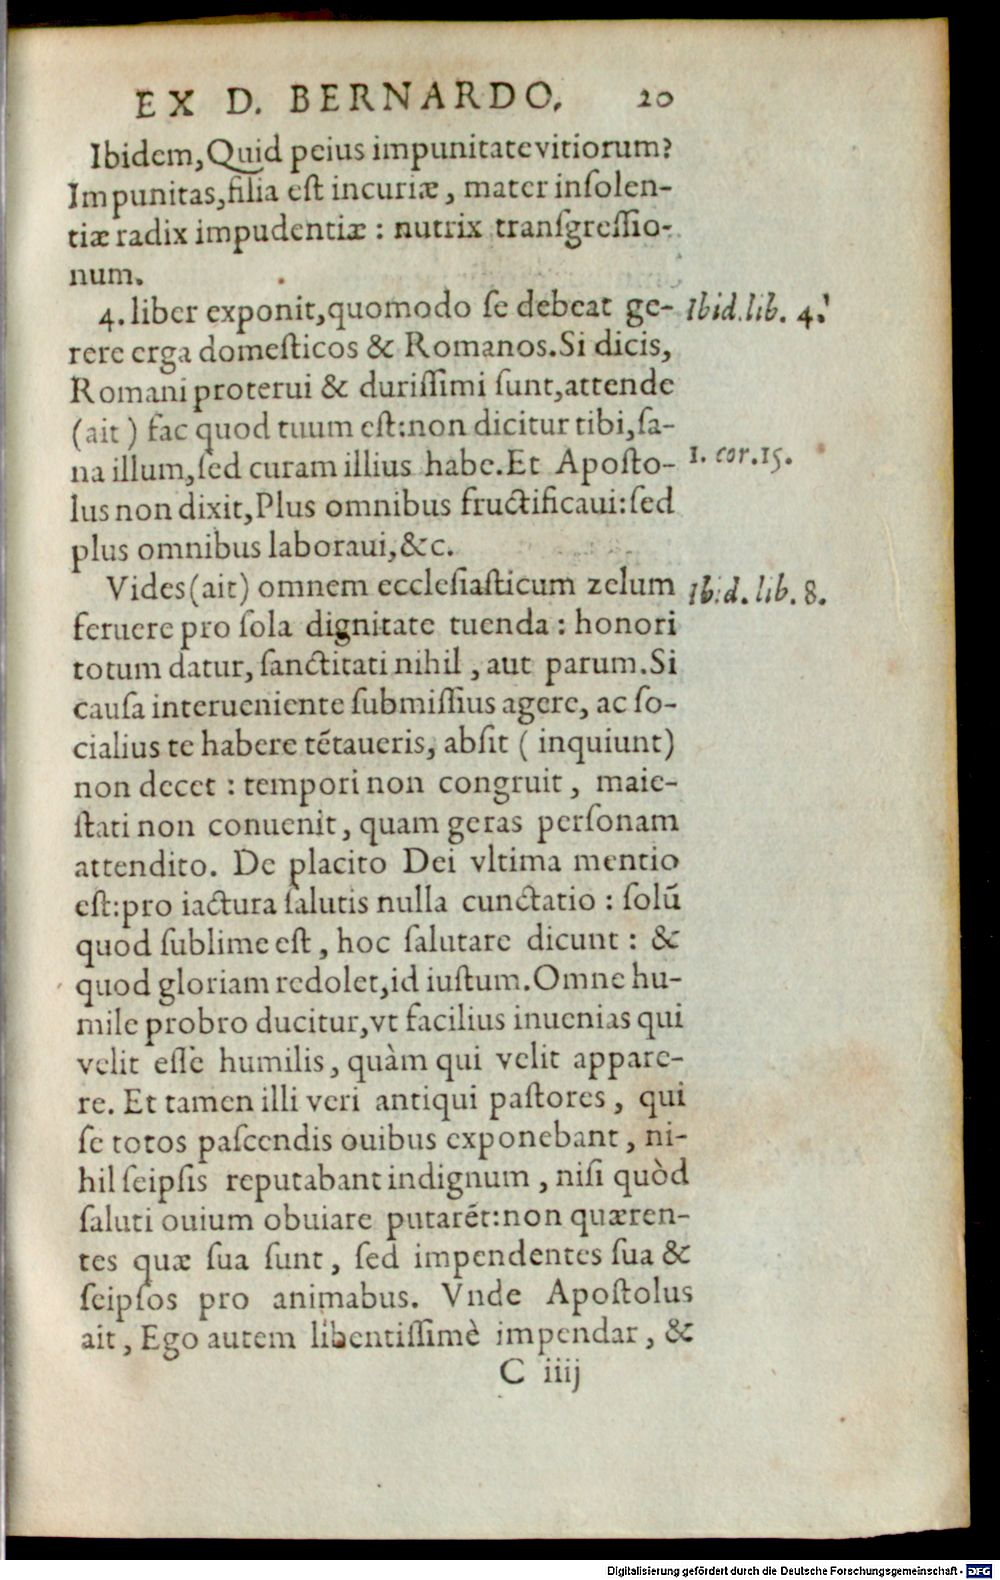 EX D. BERNARDO. 20
Ibidem, Quid peius impunitate vitiorum?
Impunitas, filia est incuriæ, mater insolen-
tiæ radix impudentiæ : nutrix transgressio-
num.
4. liber exponit, quomodo se debeat ge-
Ibid. lib. 4.
rere erga domesticos & Romanos. Si dicis,
Romani proterui & durissimi sunt, attende
(ait) fac quod tuum est: non dicitur tibi, sa-
na illum, sed curam illius habe. Et Aposto-
1. cor. 15.
lus non dixit, Plus omnibus fructificaui: sed
plus omnibus laboraui, &c.
Vides (ait) omnem ecclesiasticum zelum
Ibid. lib. 8.
feruere pro sola dignitate tuenda : honori
totum datur, sanctitati nihil, aut parum. Si
causa interueniente submissius agere, ac so-
cialius te habere tẽtaueris, absit ( inquiunt)
non decet : tempori non congruit, maie-
stati non conuenit, quam geras personam
attendito. De placito Dei vltima mentio
est: pro iactura salutis nulla cunctatio : solũ
quod sublime est, hoc salutare dicunt : &
quod gloriam redolet, id iustum. Omne hu-
mile probro ducitur, vt facilius inuenias qui
velit esse humilis, quàm qui velit appare-
re. Et tamen illi veri antiqui pastores, qui
se totos pascendis ouibus exponebant, ni-
hil seipsis reputabant indignum, nisi quòd
saluti ouium obuiare putarẽt: non quæren-
tes quæ sua sunt, sed impendentes sua &
seipsos pro animabus. Vnde Apostolus
ait, Ego autem libentissimè impendar, &
C iiij
Digitalisierung gefördert durch die Deutsche Forschungsgemeinschaft - DFG